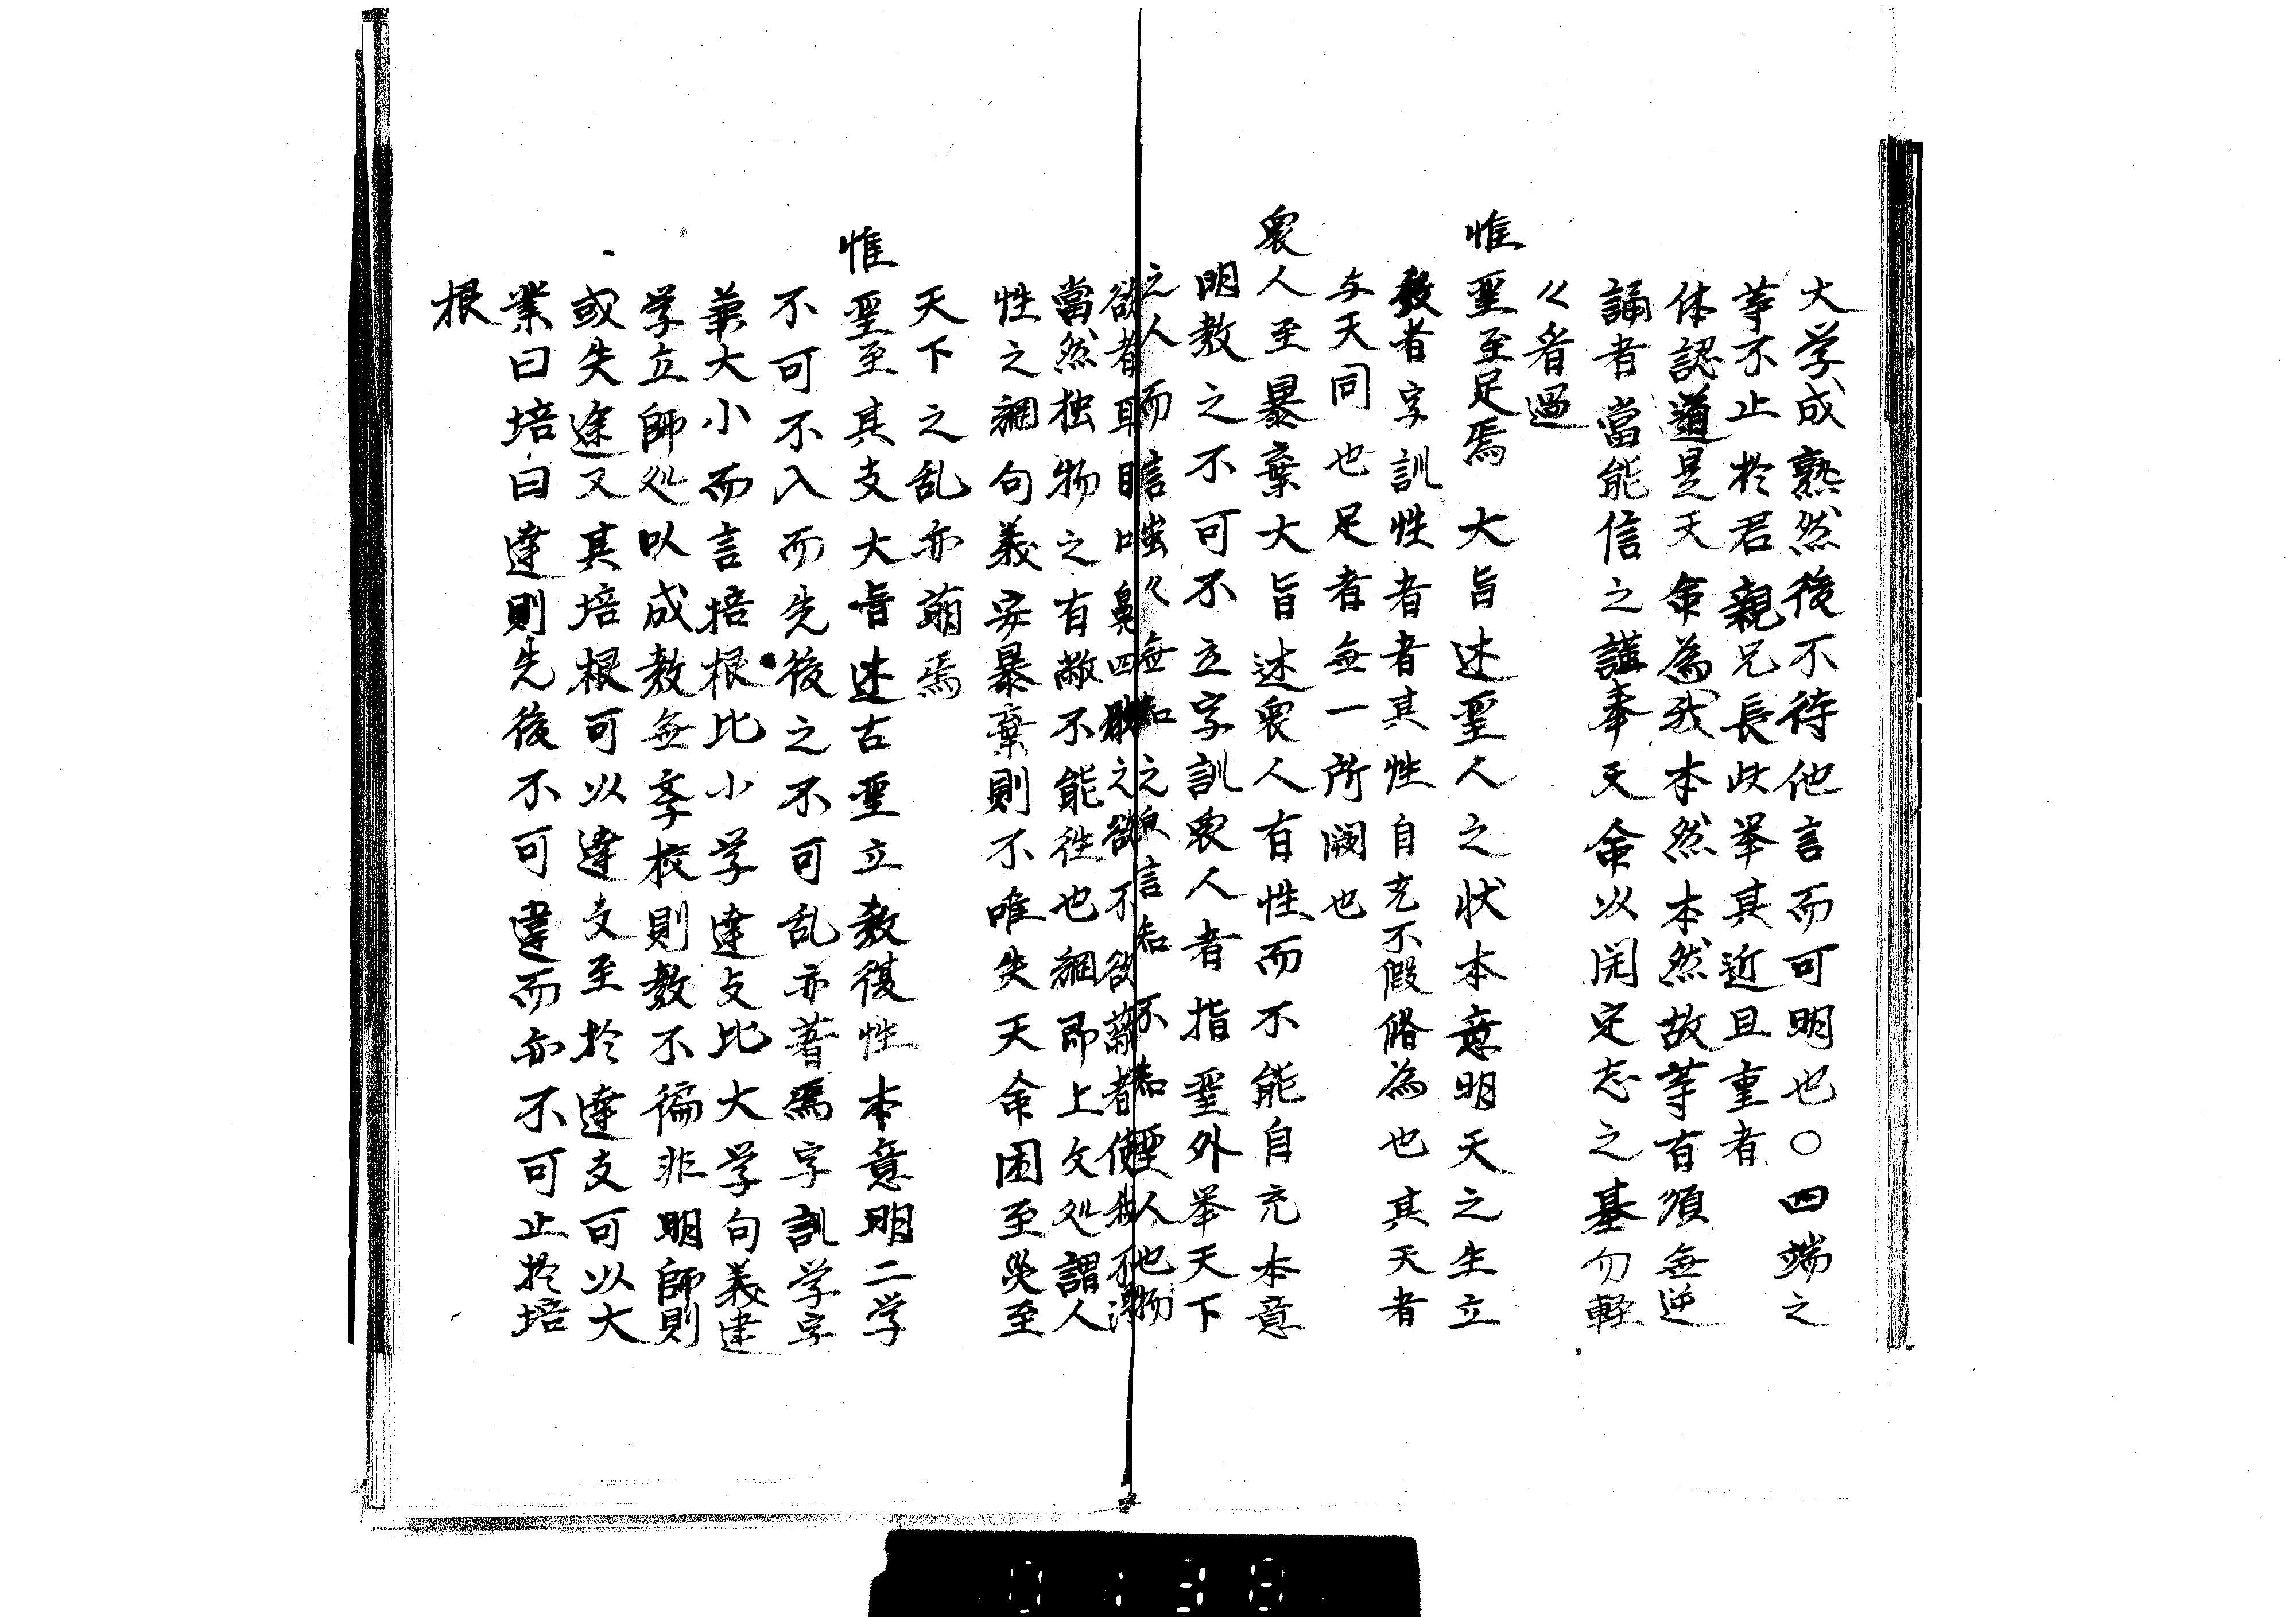 大学成熟然後不待他言而可明也○四端之
等不止於君親兄長此挙其近且重者
体認道是天命為我本然本然故等有須無逆
誦者當能信之謹奉天命以開定志之基勿軽
々看過
惟聖至足焉 大旨述聖人之状本意明天之生立
教者字訓性者者其性自充不假脩為也其天者
与天同也足者無一所闕也
衆人至暴棄大旨述衆人有性而不能自充本意
明教之不可不立字訓衆人者指聖外挙天下
之人而言蚩々無知之皃言知不知聖人他物
欲者耳目口鼻四肢之欲不欲蔽者使我不得
當然独物之有敝不能徃也綱即上文処謂人
性之綱句義安暴棄則不唯失天命困至災至
天下之乱亦萠焉
惟聖至其支大旨述古聖立教復性本意明二学
不可不入而先後之不可乱亦著焉字訓学字
兼大小而言培根比小学達支比大学句義建
学立師処以成教無斈校則教不徧非明師則
或失途又其培根可以達支至於達支可以大
業曰培曰達則先後不可違而亦不可止於培
根
0138